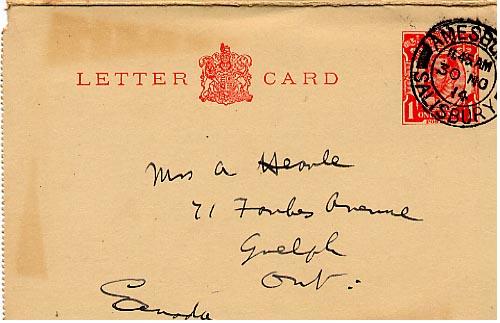 LETTER CARD
AMESB
11.45 AM
30 NO
14
SALISBURY
1 ONE
Mrs A Hearle
71 Forbes Avenue
Guelph
Ont.
Canada